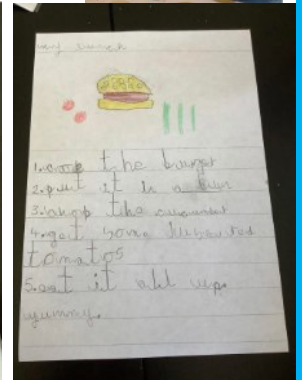 my lunch
1. cook the burger
2. put it in a bun
3. chop the
4. get some
tomatos
5. eat it all up.
yummy.